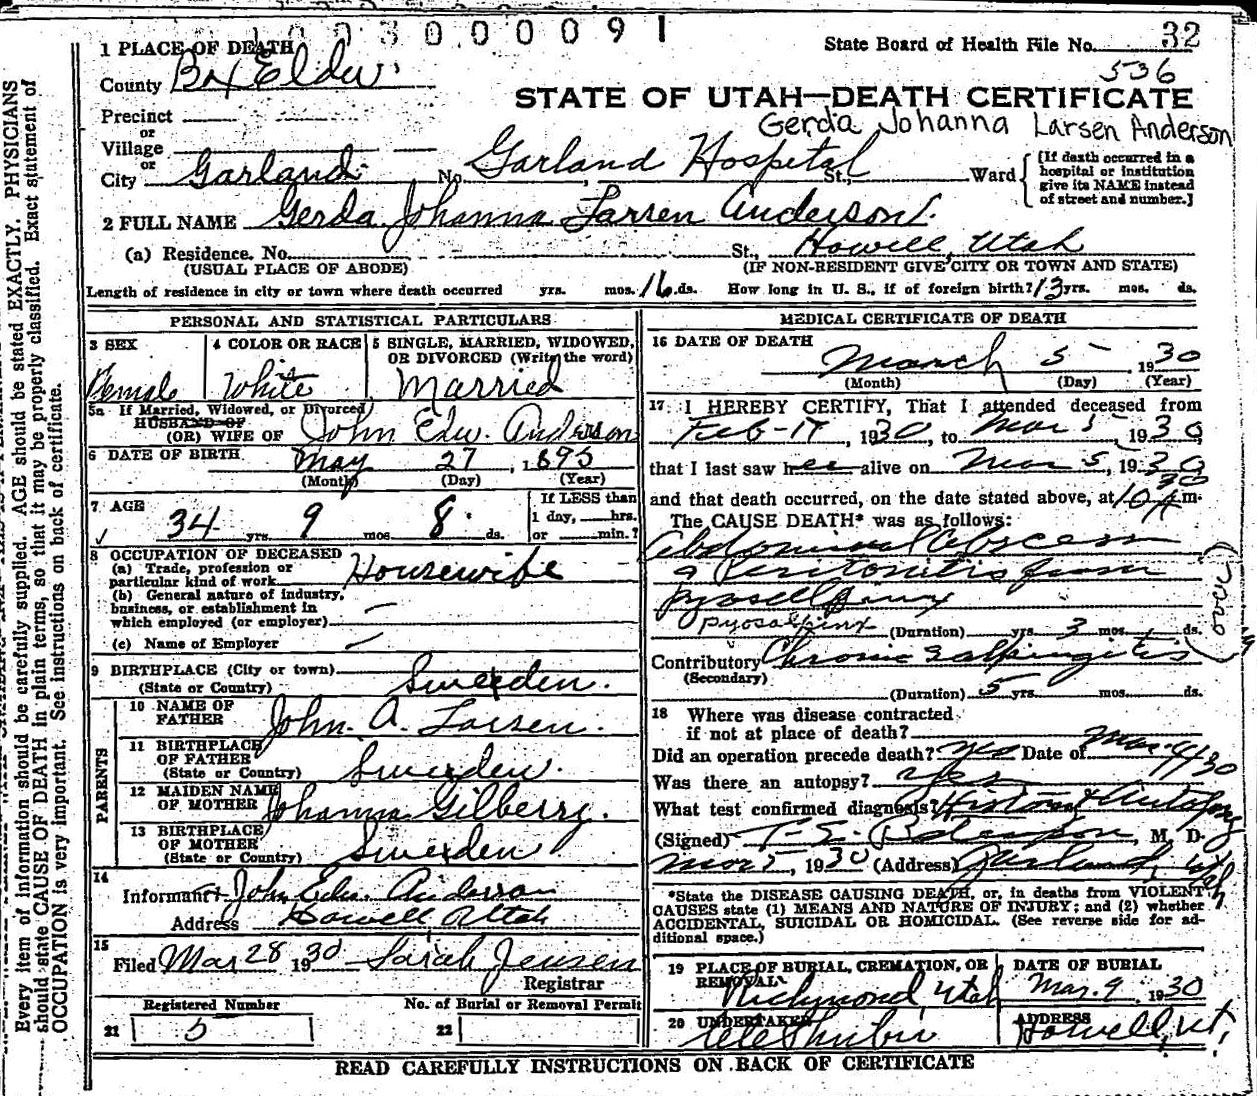 1003000091
State Board of Health File No. 32
536
1 PLACE OF DEATH
County Box Elder
STATE OF UTAH—DEATH CERTIFICATE
Gerda Johanna Larsen Anderson
Precinct
or
Village
or
City Garland No. Garland Hospital St., Ward
[If death occurred in a
hospital or institution
give its NAME instead
of street and number.]
2 FULL NAME Gerda Johanna Larsen Anderson
(a) Residence. No. St., Howell, Utah
(USUAL PLACE OF ABODE) (IF NON-RESIDENT GIVE CITY OR TOWN AND STATE)
Length of residence in city or town where death occurred yrs. mos. 16 ds. How long in U. S., if of foreign birth? 13 yrs. mos. ds.
PERSONAL AND STATISTICAL PARTICULARS
3 SEX
Female
4 COLOR OR RACE
White
5 SINGLE, MARRIED, WIDOWED,
OR DIVORCED (Write the word)
Married
5a If Married, Widowed, or Divorced
HUSBAND OF
(OR) WIFE OF John Edw. Anderson
6 DATE OF BIRTH May 27, 1895
(Month) (Day) (Year)
7 AGE
34 yrs. 9 mos. 8 ds.
If LESS than
1 day, hrs.
or min.?
8 OCCUPATION OF DECEASED
(a) Trade, profession or
particular kind of work Housewife
(b) General nature of industry,
business, or establishment in
which employed (or employer)
(c) Name of Employer
9 BIRTHPLACE (City or town)
(State or Country) Sweden.
PARENTS
10 NAME OF
FATHER John. A. Larsen.
11 BIRTHPLACE
OF FATHER
(State or Country) Sweden.
12 MAIDEN NAME
OF MOTHER Johanna Gilberry.
13 BIRTHPLACE
OF MOTHER
(State or Country) Sweden
14
Informant John Edw. Anderson
Address Howell Utah
15
Filed Mar 28 1930 Sarah Jensen
Registrar
Registered Number
21 5
No. of Burial or Removal Permit
22
MEDICAL CERTIFICATE OF DEATH
16 DATE OF DEATH
March 5, 1930
(Month) (Day) (Year)
17 I HEREBY CERTIFY, That I attended deceased from
Feb-17, 1930, to Mar 5, 1930
that I last saw her alive on Mar 5, 1930
and that death occurred, on the date stated above, at 10 30 A m.
The CAUSE DEATH* was as follows:
Abdominal Abscess
& Peritonitis from
pyosalpinx
(Duration) yrs. 3 mos. ds.
(over)
Contributory Chronic Salpingitis
(Secondary)
(Duration) 5 yrs. mos. ds.
18 Where was disease contracted
if not at place of death?
Did an operation precede death? yes Date of Mar. 4/30
Was there an autopsy? Yes
What test confirmed diagnosis? History & Autopsy
(Signed) M. D.
Mar 5, 1930 (Address) Garland, Utah
*State the DISEASE CAUSING DEATH, or, in deaths from VIOLENT
CAUSES state (1) MEANS AND NATURE OF INJURY; and (2) whether
ACCIDENTAL, SUICIDAL OR HOMICIDAL. (See reverse side for ad-
ditional space.)
19 PLACE OF BURIAL, CREMATION, OR
REMOVAL
Richmond Utah
DATE OF BURIAL
Mar. 9, 1930
20 UNDERTAKER
ADDRESS
Howell, Ut.
READ CAREFULLY INSTRUCTIONS ON BACK OF CERTIFICATE
Every item of information should be carefully supplied. AGE should be stated EXACTLY. PHYSICIANS
should state CAUSE OF DEATH in plain terms, so that it may be properly classified. Exact statement of
OCCUPATION is very important. See instructions on back of certificate.